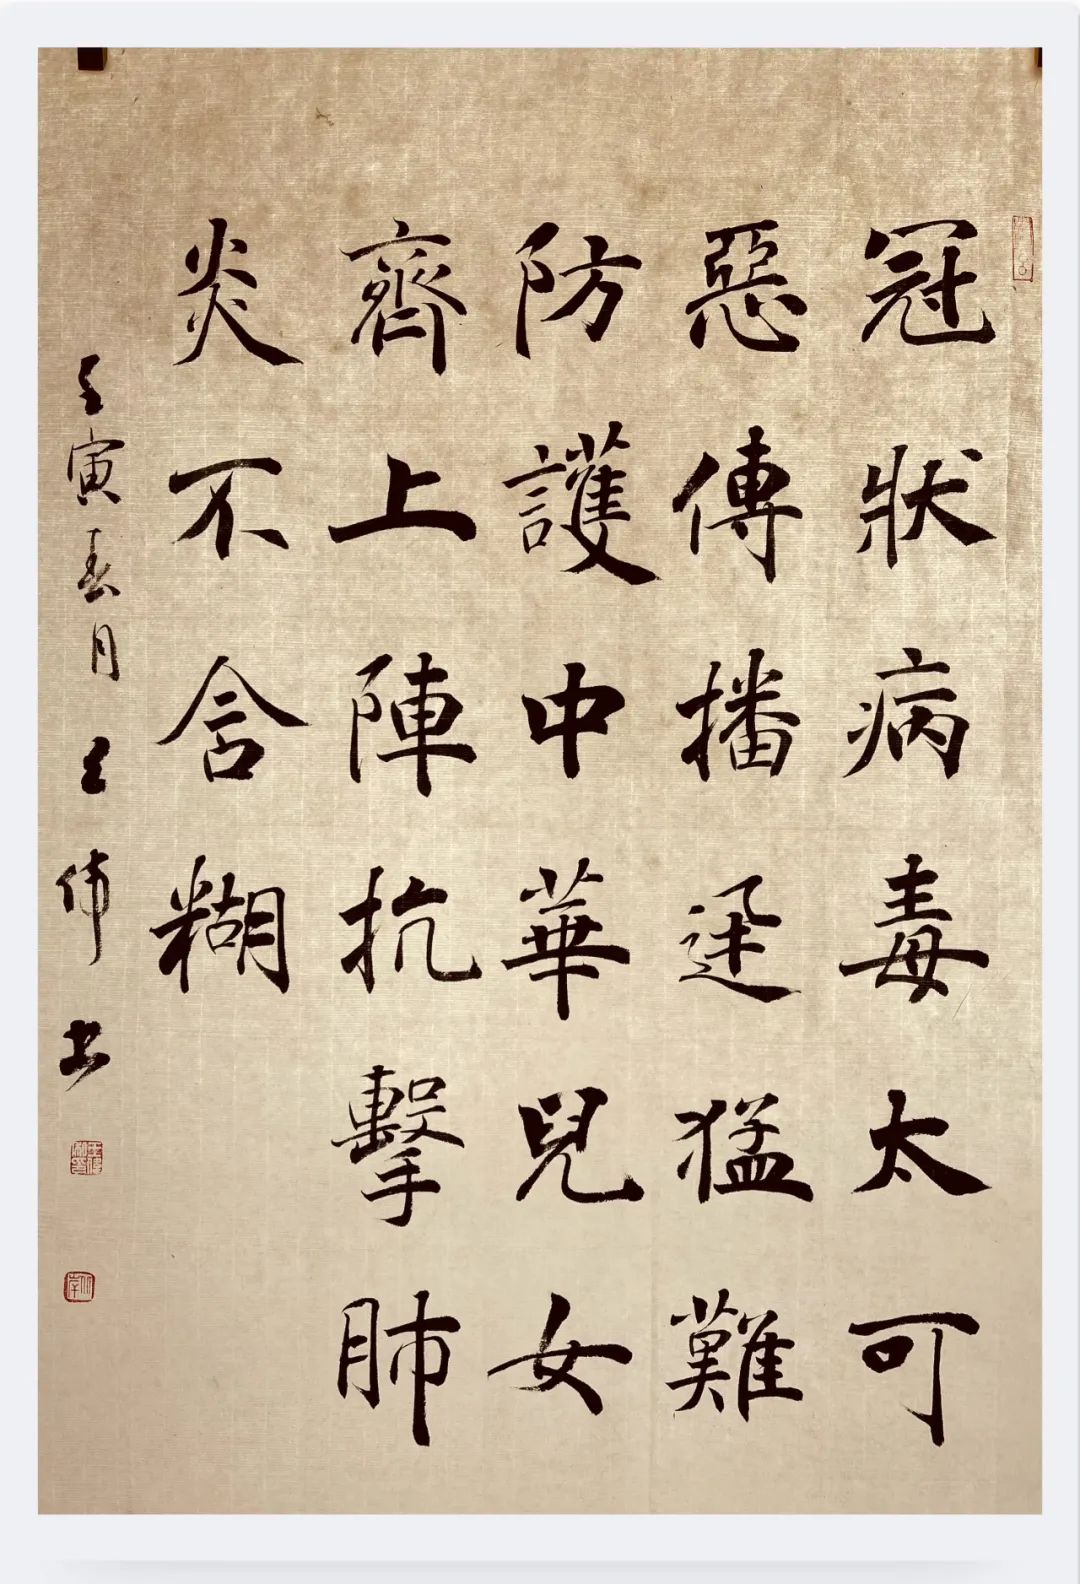 冠狀病毒太可
惡傳播迳猛難
防護中華兒女
齊上陣抗擊肺
炎不含糊
壬寅春月王伟书